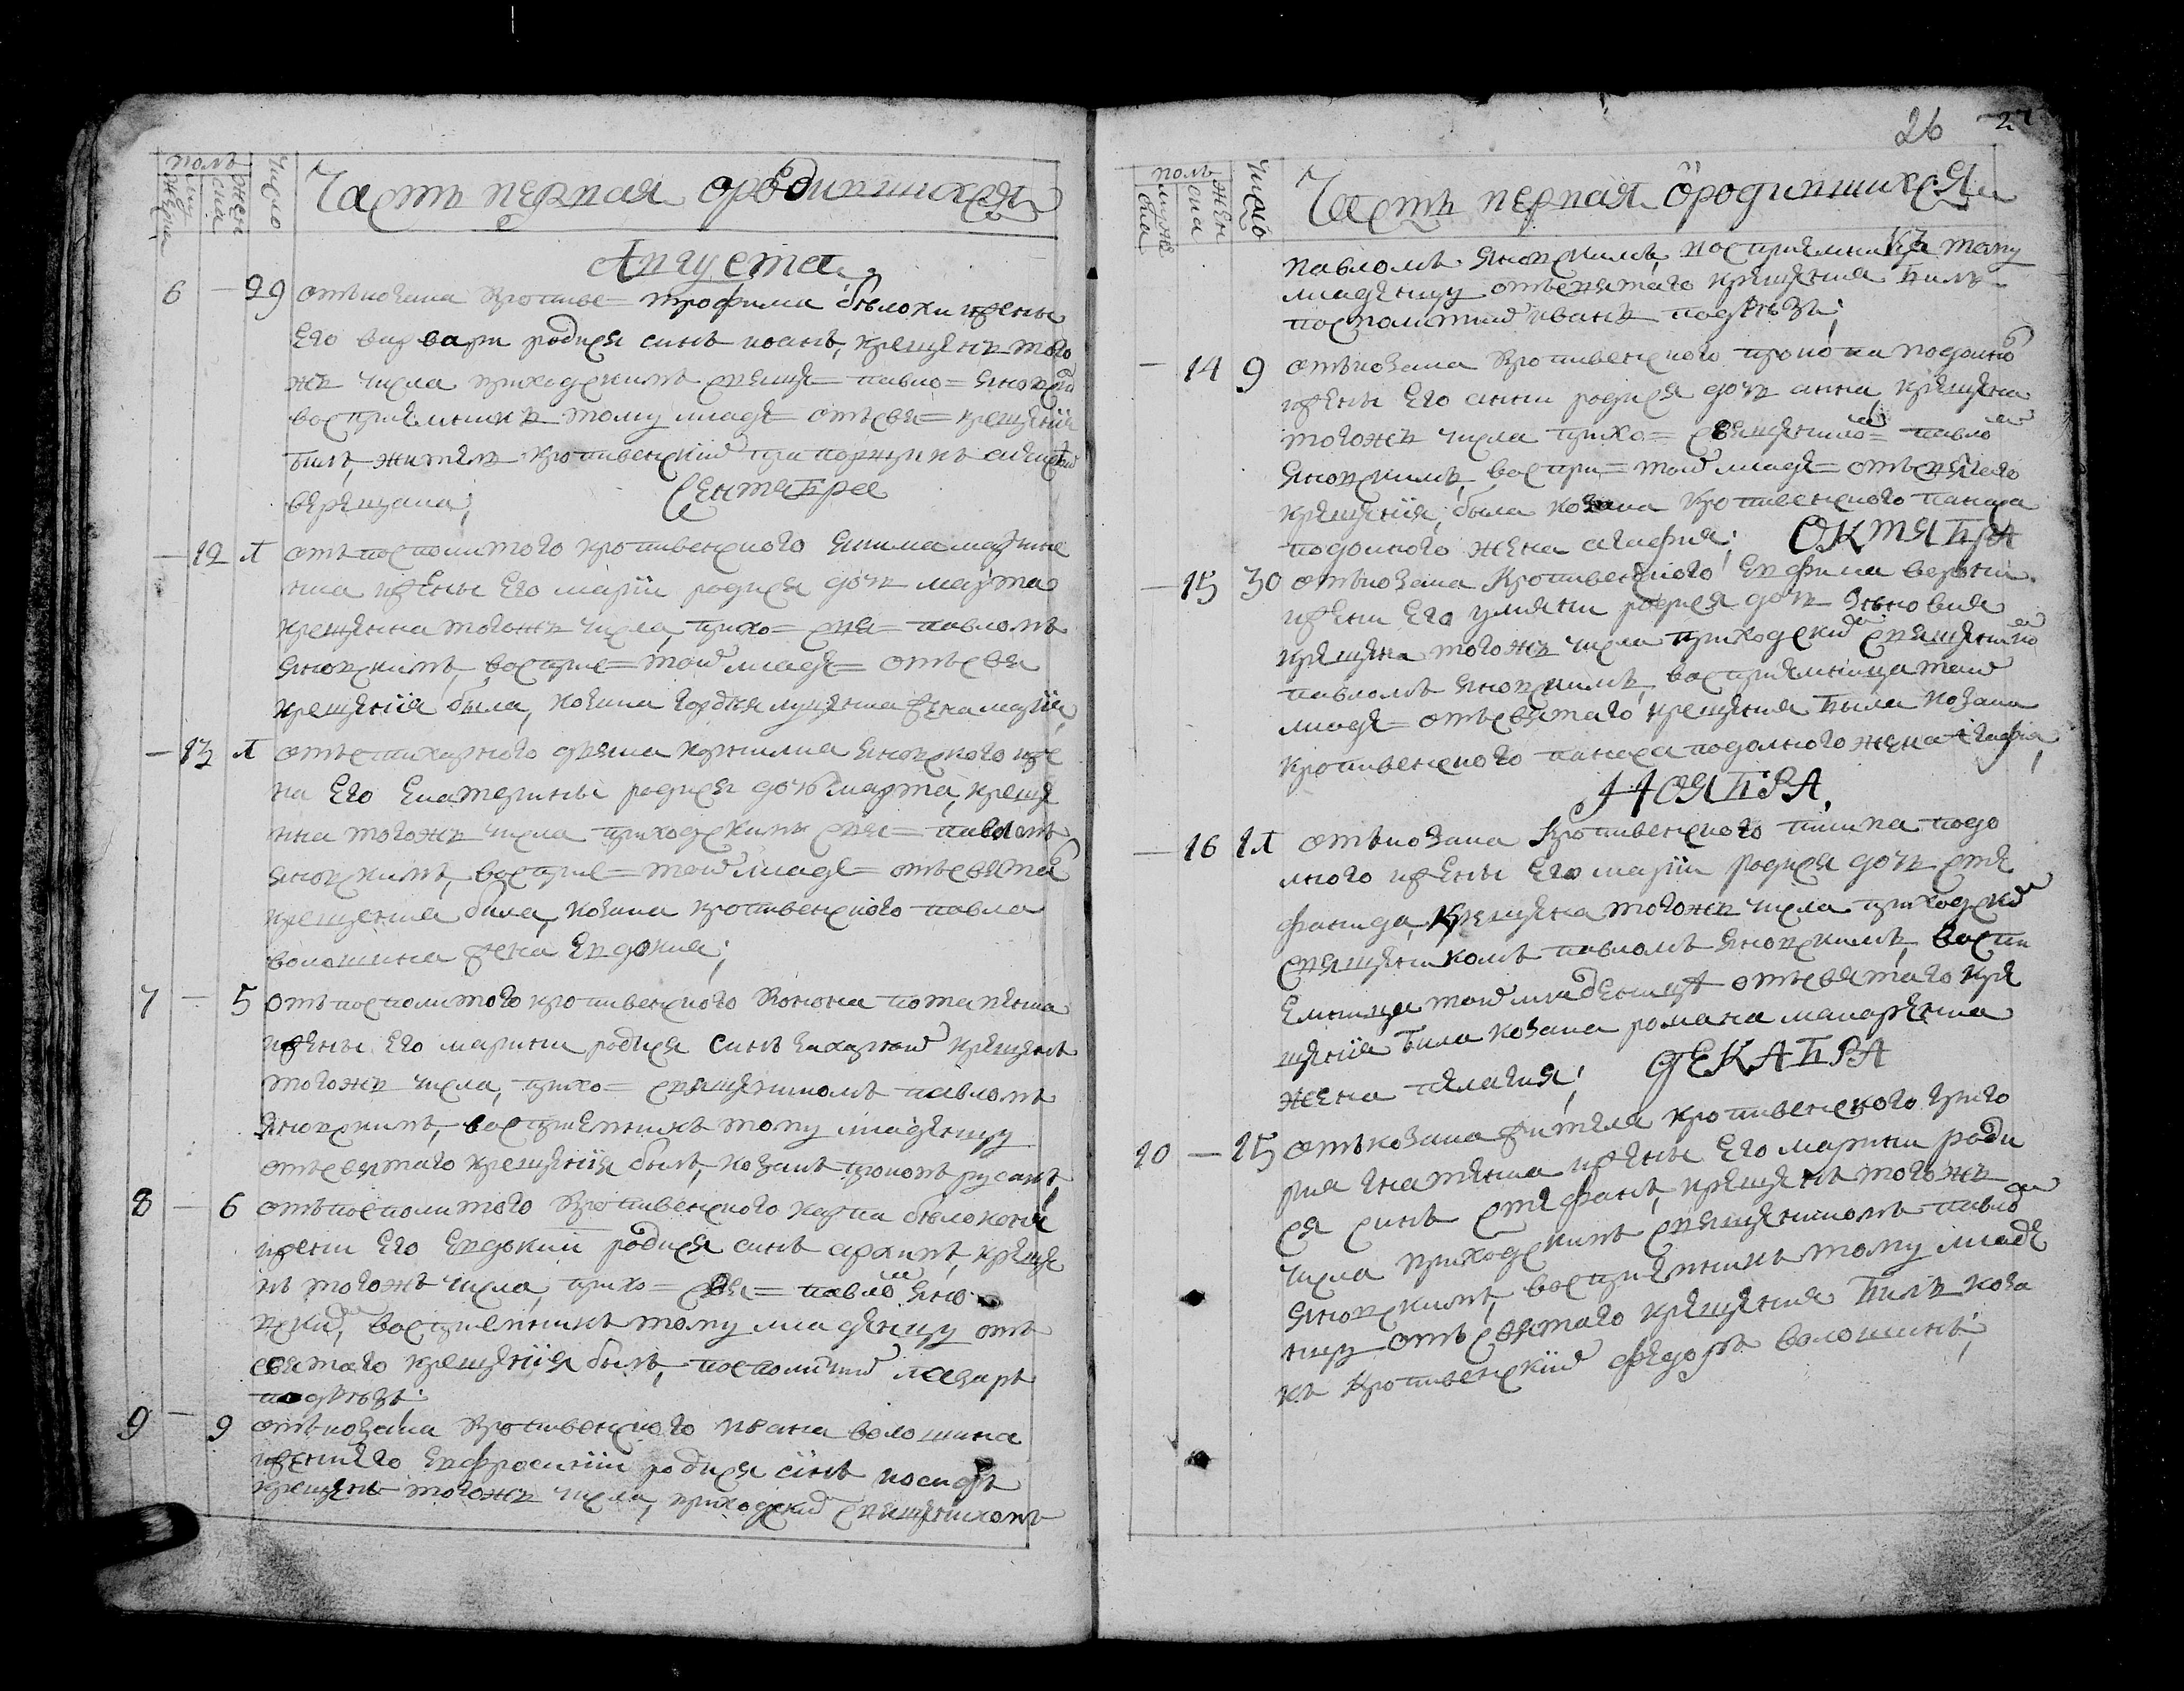 полъ
мужеска
ска
жен
Число
Часть первая ородившихся
Августа
6 — 29 отъкозака Кропиве= трофима бѣлоки ижены
Его варвари родися синъ иоанъ, крещенъ того
жъ числа приходскимъ свяще= павло= янов
восприемникъ тому младе= отъсвя= крещенїя
билъ, житель кропивенскїй
верещака; Сентабря
— 12 1 отъпосполитого кропивенского
нка ижены Его марїи родися дочъ марта
крещенна тогожъ числа, прихо= свя= павломъ
яновскимъ, воспри= той младе= отъсвя
крещенїя была, козака гордѣя луценка жена марїя,
— 13 1 отъ викарного священника корнилиа яновского иже
на Его Екатерины родися дочъ марта, креще
нна тогожъ числа приходскимъ свя= павломъ
яновскимъ, восприе= той младе= отъсвята
крещения била, козака кропивенского павла
волошина жена Евдокия;
7 — 5 отъпосполитого кропивенского Конона потапенка
ижены Его марини родися синъ захарїй крещенъ
тогожъ числа, прихо= священикомъ павломъ
яновскимъ, восприемникъ тому младенцу
отъсвятаго крещенїя былъ, козакъ прокопъ русанъ,
8 — 6 отъпосполитого Кропивенского карпа бѣлоконя
ижени Его Евдокии родися синъ архипъ, креще
нъ тогожъ числа, прихо= свя= павло яно
вски, восприемникъ тому младенцу отъ
святаго крещенїя былъ, посполитий лазарь
подрѣзъ:
9 — 9 отъкозака Кропивенского ивана волошина
иженїего Евфросинїи родися сїнъ иосифъ
крещенъ тогожъ числа, приходски священикомъ
26 27
полъ
мужеска
ска
жен
Число
Часть первая ородившихся
павломъ яновскимъ, восприемникъ тому
младенцу отъсвятаго крещения билъ
посполитий иванъ подрѣзъ;
— 14 9 отъкозака Кропивенского прокопа подолно
ижены Его анни родися дочъ анна крещена
тогожъ числа прихо= священико= павло
яновскимъ, воспри= той младе= отъсвятаго
крещенїя, была козака Кропивенского панаса
подолного жена агафия: ОКТЯБРА
— 15 30 отъкозака Кропивенского Евфима
ижени Его улияни родися дочъ зѣновия
крещена тогожъ числа приходски священико
павломъ яновскимъ, восприемница той
младе= отъсвятаго крещения была козака
кропивенского панаса подолного жена Агафия,
НОЯБРА,
— 16 21 отъкозака Кропивенского пилипа подо
лного ижены Его марїи родися дочъ сте
фанида, Крещена тогожъ числа приходски
священикомъ павломъ яновскимъ, воспри
Емница той младенцА отъсвятаго кре
щенїя била козака романа макаренка
жена пелагия; ДЕКАБРА
10 — 25 отъкозака жителя кропивенского григо
рия игнатенка ижены Его марини роди
ся синъ стефанъ, крещенъ тогожъ
числа приходскимъ священикомъ павло
яновскимъ, восприемникъ тому младе
нцу отъсвятаго крещения билъ коза
къ Кропивенскїй федоръ волошинъ;